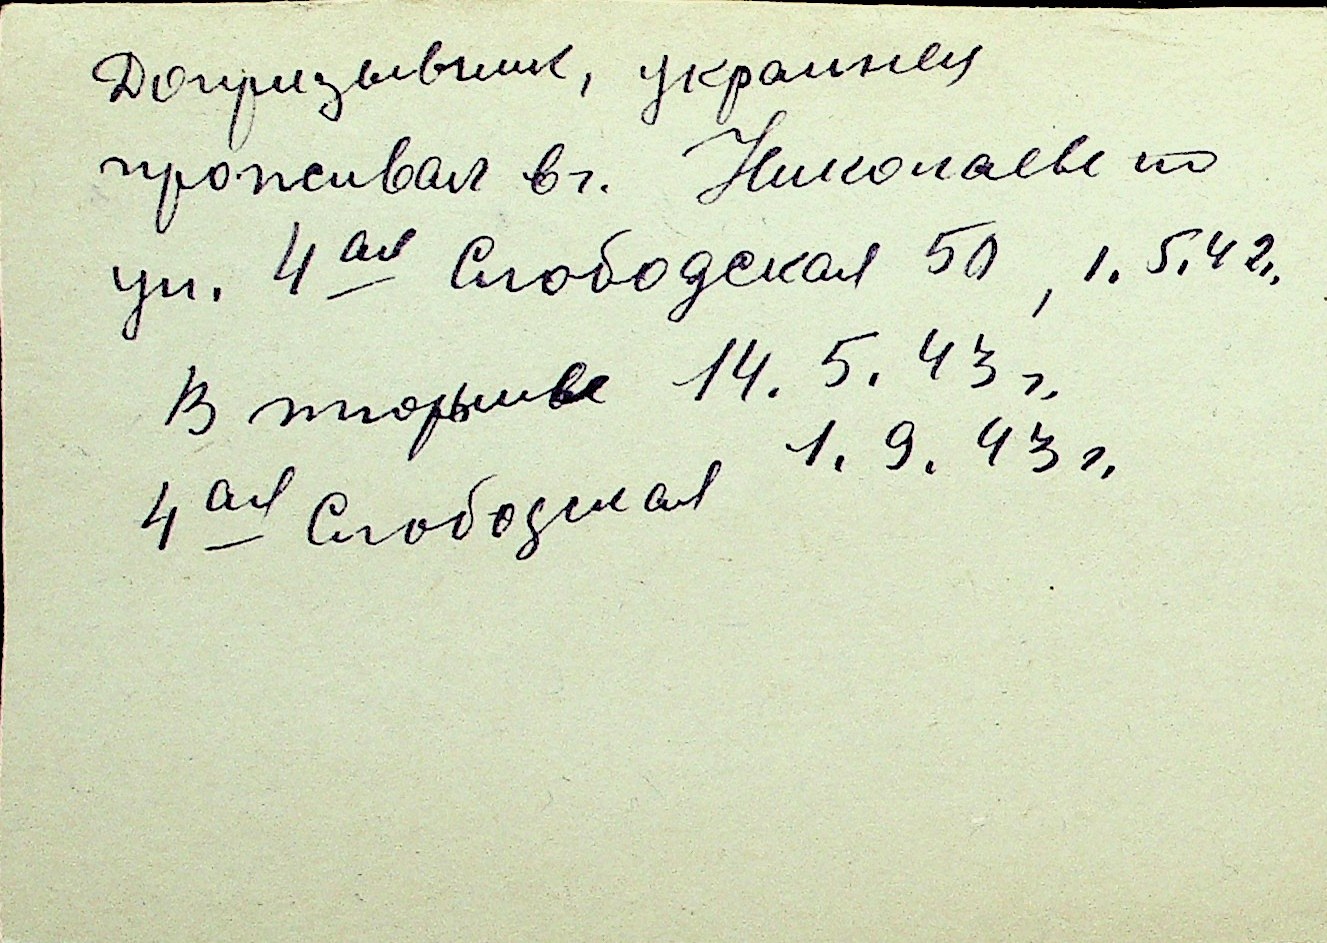 Допризывник, украинец
проживал в г. Николаеве по
ул. 4ая Слободская 50, 1.5.42г.
В тюрьме 14. 5. 43 г.
1. 9. 43 г.
4ая Слободская